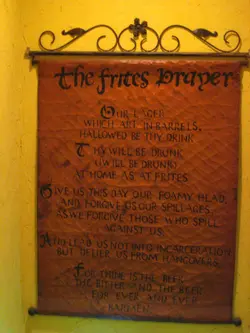 The Frites Prayer
OUR LAGER
WHICH ART IN BARRELS,
HALLOWED BE THY DRINK
THY WILL BE DRUNK
(I WILL BE DRUNK)
AT HOME AS AT FRITES
GIVE US THIS DAY OUR FOAMY HEAD
AND FORGIVE US OUR SPILLAGES
AS WE FORGIVE THOSE WHO SPILL
AGAINST US.
AND LEAD US NOT INTO INCARCERATION
BUT DELIVER US FROM HANGOVERS
FOR THINE IS THE BEER,
THE BITTER AND THE KEER
FOR EVER AND EVER
BARMEN